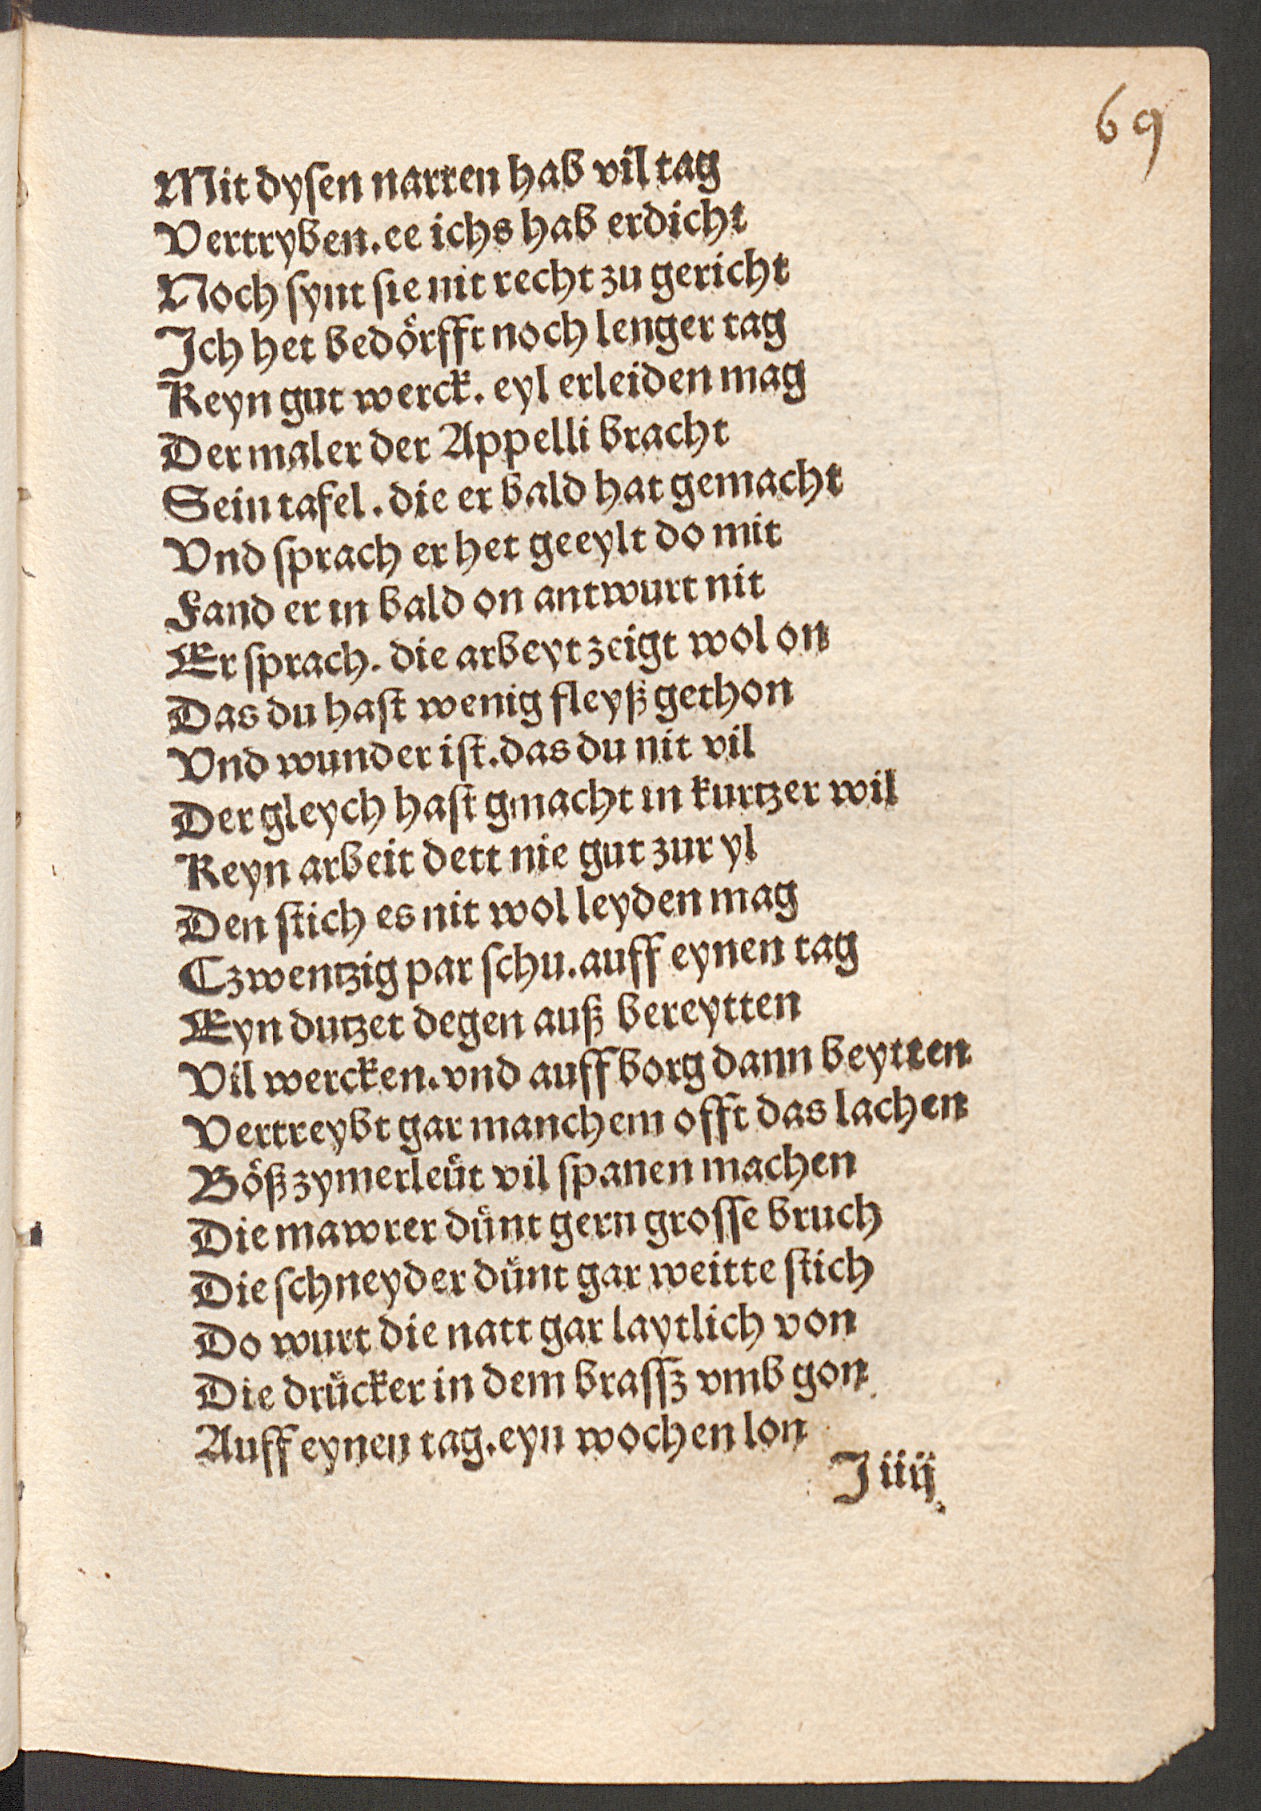 69
Mit dysen narren hab vil tag
Vertryben. ee ichs hab erdicht
Noch synt sie nit recht zu gericht
Ich het bedörfft noch lenger tag
Keyn gut werck. eyl erleiden mag
Der maler der Appelli bracht
Sein tafel. die er bald hat gemacht
Vnd sprach er het geeylt do mit
Fand er in bald on antwurt nit
Er sprach. die arbeyt zeigt wol on
Das du hast wenig fleyß gethon
Vnd wunder ist. das du nit vil
Der gleych hast gmacht in kurtzer wil
Keyn arbeit dett nie gut zur yl
Den stich es nit wol leyden mag
Czwentzig par schu. auff eynen tag
Eyn dutzet degen auß bereytten
Vil wercken. vnd auff borg dann beytten
Vertreybt gar manchem offt das lachen
Böß zymerleüt vil spanen machen
Die mawrer dünt gern grosse bruch
Die schneyder dünt gar weitte stich
Do wurt die natt gar laytlich von
Die drücker in dem brassz vmb gon
Auff eynen tag. eyn wochen lon
J iiij